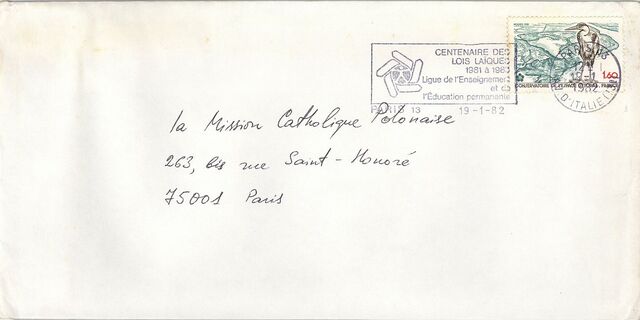 CENTENAIRE DES
LOIS LAÏQUES
1981 à 1983
Ligue de l'Enseignement
et de
l'Éducation permanente
PARIS 13
19-1-82
1,60
CONSERVATOIRE DE L'ESPACE LITTORAL FRANCE
D'ITALIE
la Mission Catholique Polonaise
263, bis rue Saint-Honoré
75001 Paris